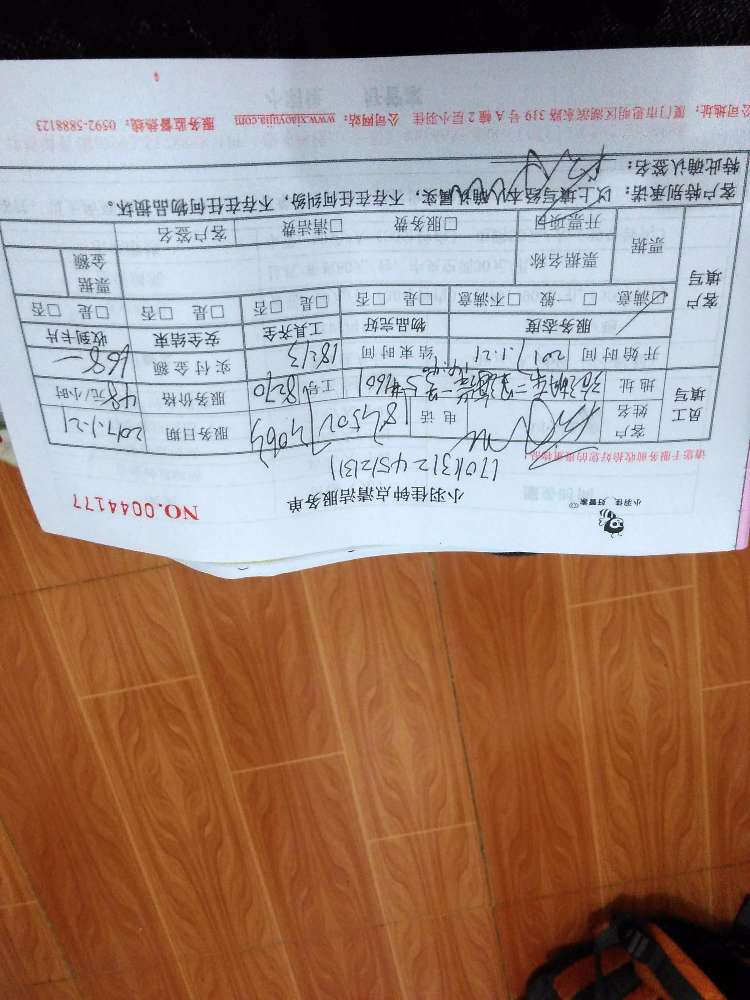 小羽佳 好管家
小羽佳钟点清洁服务单
NO.0044177
17013124512131
请您于服务前收拾好您的贵重物品
员工填写
客户姓名
电话
服务日期
2017.1.21
地址
1601
工号
8270
服务价格
48元/小时
客户填写
开始时间
2017.1.21
结束时间
实付金额
168
服务态度
物品完好
工具齐全
安全结束
收到卡片
☑满意 □一般 □不满意
□是 □否
□是 □否
□是 □否
□是 □否
票据
票据名称
票据金额
开票项目
□服务费
□清洁费
客户签名
客户特别承诺:以上填写经本人确认属实,不存在任何纠纷,不存在任何物品损坏。
特此确认签名:
公司地址:厦门市思明区湖滨东路 319 号 A 幢 2 层小羽佳 公司网站:www.xiaoyujia.com 服务监督热线:0592-5888123